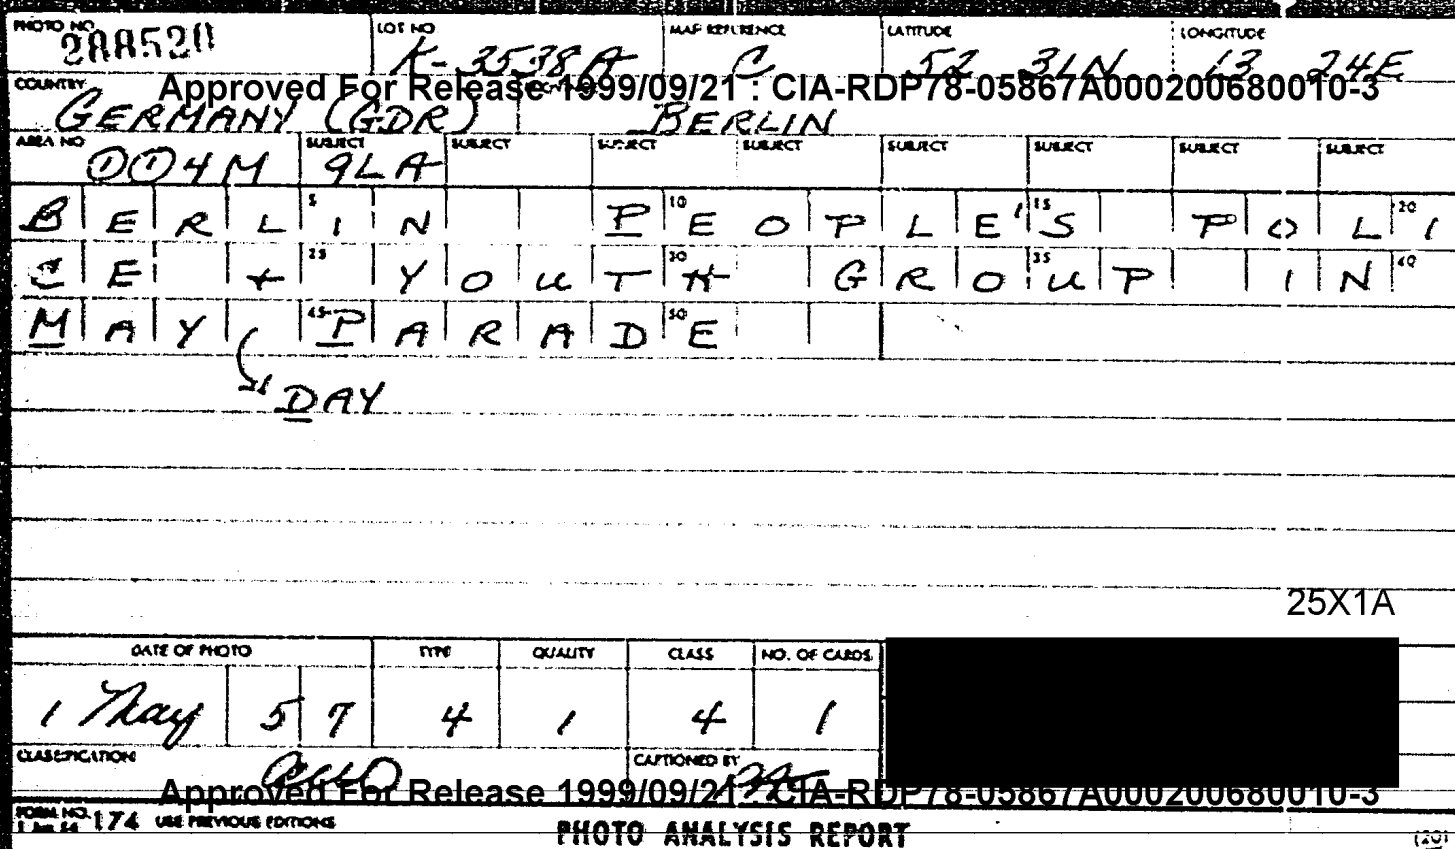 PHOTO NO. 288520 LOT NO. K-3538A MAP REFERENCE C LATITUDE 52 31N LONGITUDE 13 24E
Approved For Release 1999/09/21 : CIA-RDP78-05867A000200680010-3
COUNTRY GERMANY (GDR) BERLIN
AREA NO. 004M SUBJECT 9LA SUBJECT SUBJECT SUBJECT SUBJECT SUBJECT SUBJECT SUBJECT
BERLIN PEOPLE'S POLI 5 10 15 20
CE + YOUTH GROUP IN 25 30 35 40
MAY PARADE 45 50
DAY
25X1A
DATE OF PHOTO TYPE QUALITY CLASS NO. OF CARDS
1 May 57 4 1 4 1
CLASSIFICATION CAPTIONED BY
Approved For Release 1999/09/21 : CIA-RDP78-05867A000200680010-3
FORM NO. 174 USE PREVIOUS EDITIONS PHOTO ANALYSIS REPORT (20)